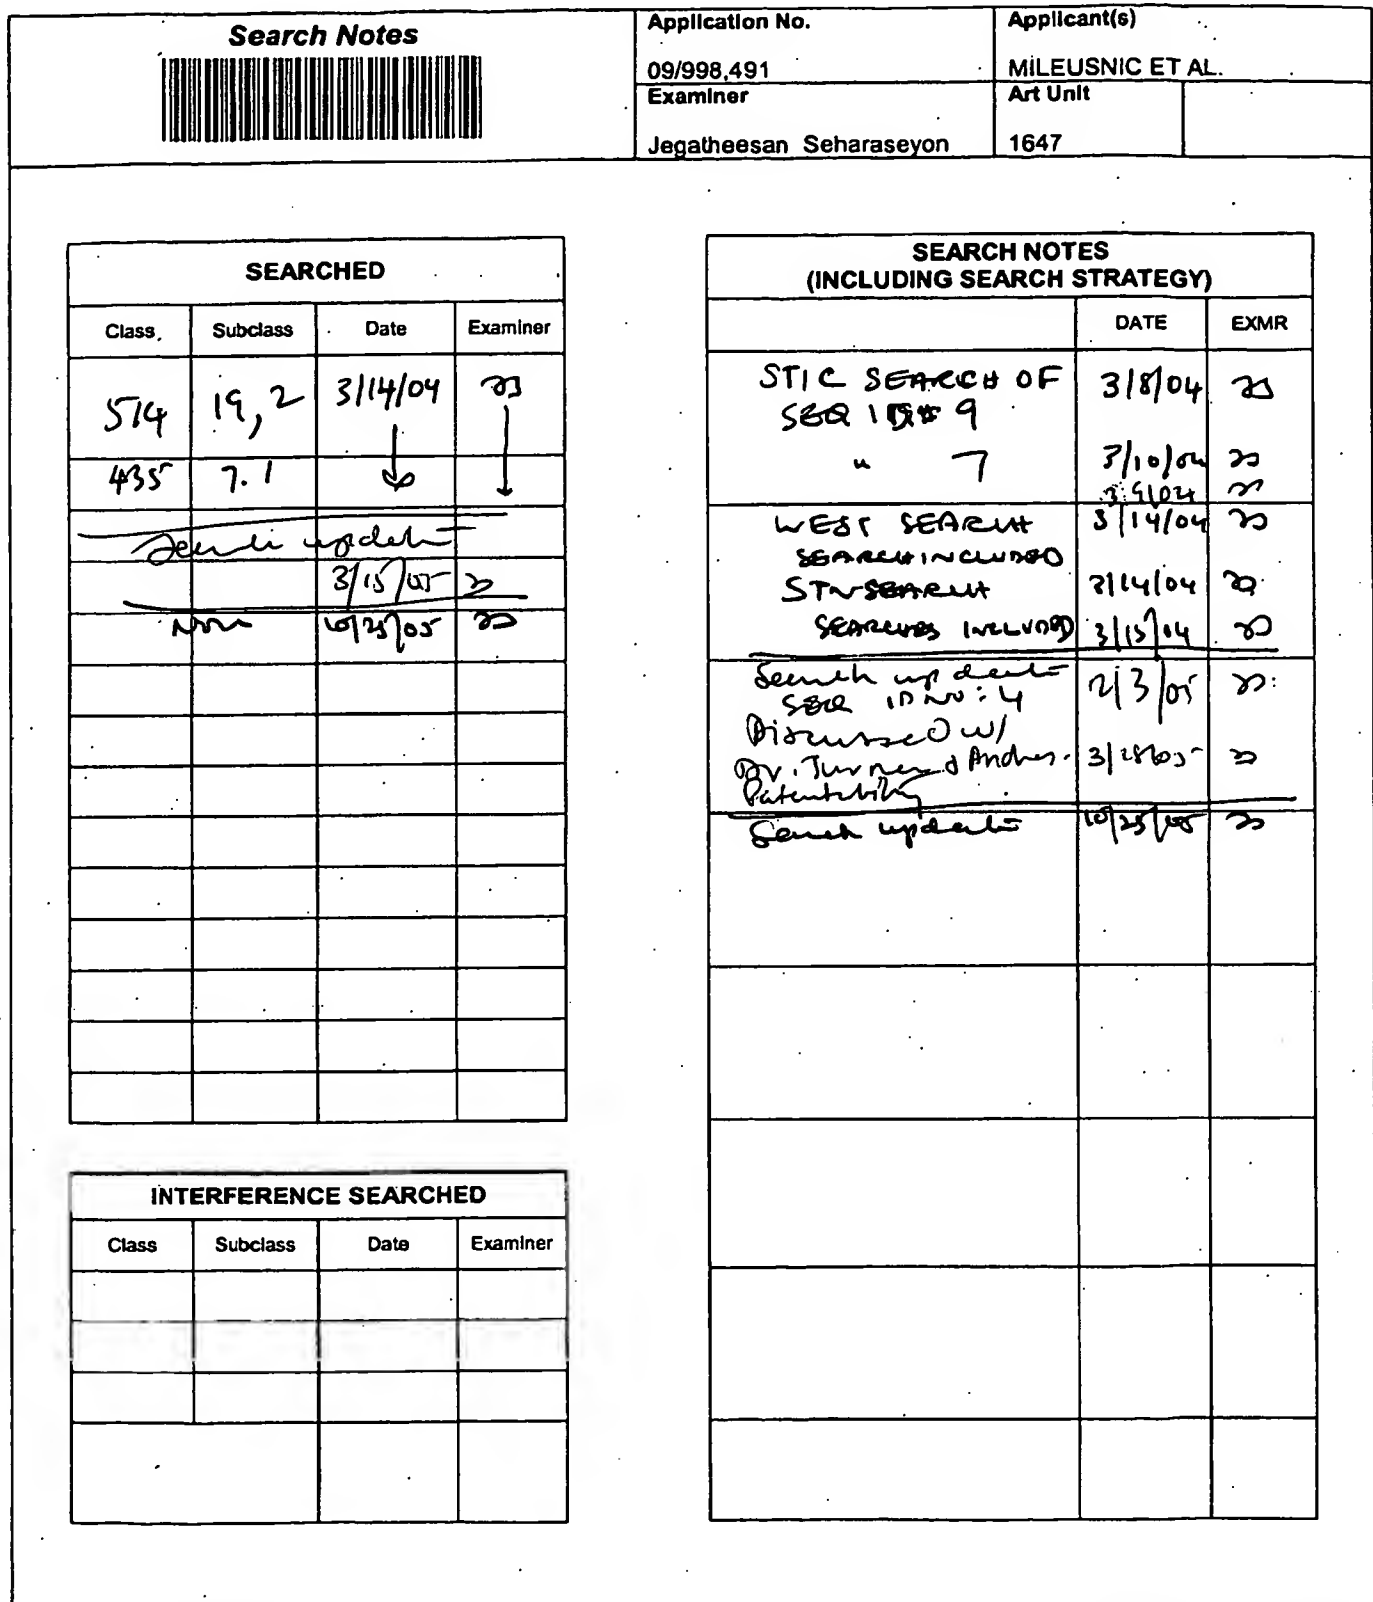 Search Notes
Application No.
09/998,491
Applicant(s)
MILEUSNIC ET AL.
Examiner
Jegatheesan Seharaseyon
Art Unit
1647
SEARCHED
Class Subclass Date Examiner
514 19, 2 3/14/04 JS
435 7.1
Search update
3/15/05 JS
None 10/25/05 JS
INTERFERENCE SEARCHED
Class Subclass Date Examiner
SEARCH NOTES
(INCLUDING SEARCH STRATEGY)
DATE EXMR
STIC SEARCH OF 3/8/04 JS
SEQ ID# 9
" 7 3/10/04 JS
3/9/04 JS
WEST SEARCH 3/14/04 JS
SEARCH INCLUDED
STN SEARCH 3/14/04 JS
SEARCHES INCLUDED 3/15/04 JS
Search update 2/3/05 JS
SEQ ID NO: 4
Discussed w/
Dr. Turner & Andres. JS
Patentability
Search update 10/25/05 JS